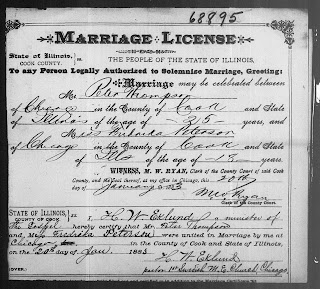 68895
MARRIAGE LICENSE
State of Illinois,
COOK COUNTY.
THE PEOPLE OF THE STATE OF ILLINOIS,
To any Person Legally Authorized to Solemnize Marriage, Greeting:
Marriage may be celebrated between
Mr. Peter Thompson
of Chicago in the County of Cook and State
of Illinois of the age of 25 years, and
Miss Peterson
of Chicago in the County of Cook and State
of Ills of the age of 18 years.
WITNESS, M. W. RYAN, Clerk of the County Court of said Cook
County, and the Seal thereof, at my office in Chicago, this 20th
day of January 1883
M W Ryan
Clerk of the County Court.
STATE OF ILLINOIS,
COUNTY OF COOK
I, H. W. Eklund a minister of
the Gospel hereby certify that Mr. Peter Thompson
and Miss Peterson were united in Marriage by me at
Chicago in the County of Cook and State of Illinois,
on the 20th day of Jan. 1883
H W Eklund
(OVER) pastor 1st Swedish M. E. Church Chicago.